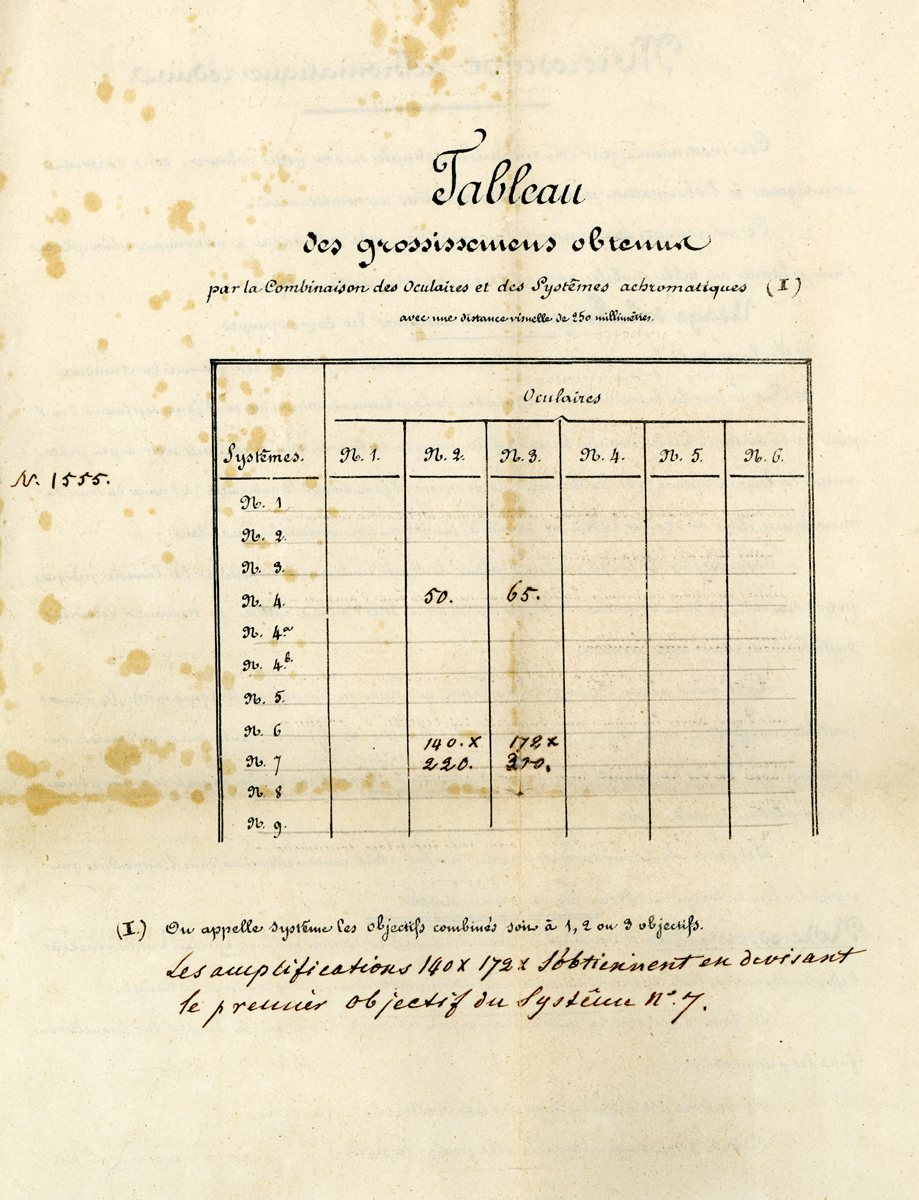 Tableau
des grossissemens obtenus
par la Combinaison des Oculaires et des Systêmes achromatiques (I)
avec une distance visuelle de 250 millimêtres.
Oculaires
Systêmes. N. 1. N. 2. N. 3. N. 4. N. 5. N. 6.
N. 1555.
N. 1
N. 2
N. 3.
N. 4. 50. 65.
N. 4.a
N. 4.b
N. 5.
N. 6
140. x 172 x
N. 7 220.
N. 8
N. 9.
(I.) On appelle systême les objectifs combinés soit à 1, 2 ou 3 objectifs.
Les amplifications 140 x 172 x s'obtiennent en devisant
le premier objectif du Système No. 7.